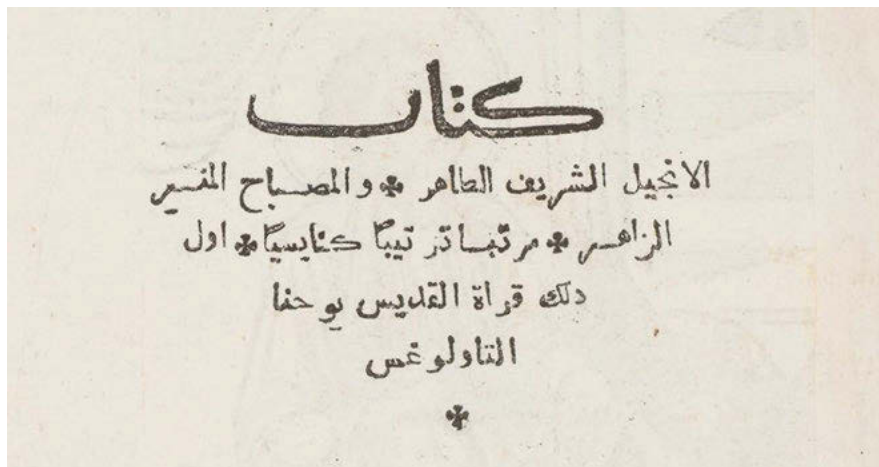 كتاب
الانجيل الشريف الطاهر ✤ والمصباح المنير
الزاهر ✤ مرتبا ترتيبًا كنايسيًا ✤ اول
دلك قراة القديس يوحنا
التاولوغس
✤